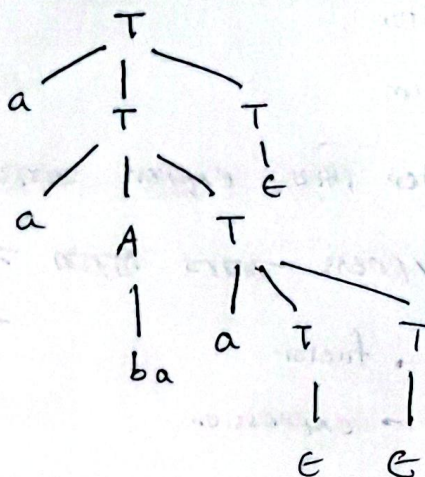 T
a T T
a A T ϵ
ba a T T
ϵ ϵ